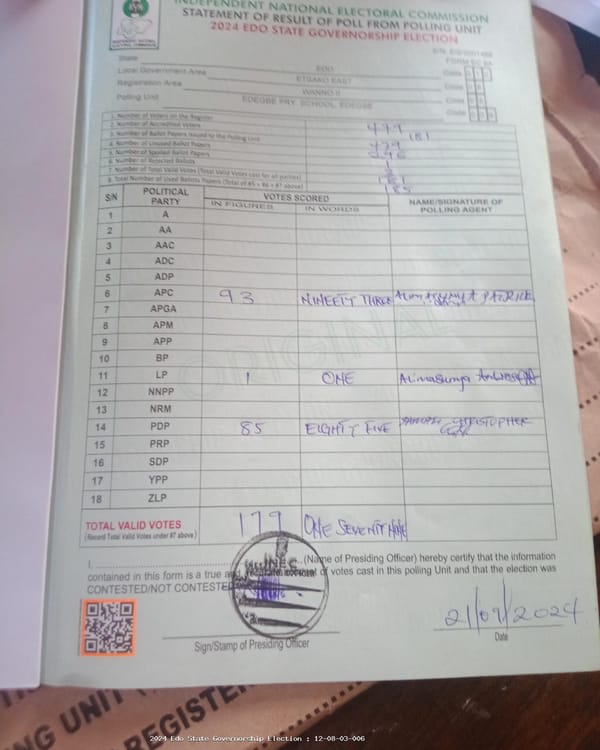 INDEPENDENT NATIONAL ELECTORAL COMMISSION
STATEMENT OF RESULT OF POLL FROM POLLING UNIT
2024 EDO STATE GOVERNORSHIP ELECTION
FORM EC 8A
State EDO Code
Local Government Area ETSAKO EAST Code
Registration Area WANNO II Code
Polling Unit EDEGBE PRY. SCHOOL, EDEGBE Code
1. Number of Voters on the Register 479
2. Number of Accredited Voters 181
3. Number of Ballot Papers Issued to the Polling Unit 479
4. Number of Unused Ballot Papers
5. Number of Spoiled Ballot Papers
6. Number of Rejected Ballots
7. Number of Total Valid Votes (Total Valid Votes cast for all parties)
8. Total Number of Used Ballots Papers (Total of #5 + #6 + #7 above)
S/N POLITICAL PARTY VOTES SCORED NAME/SIGNATURE OF POLLING AGENT
IN FIGURES IN WORDS
1 A
2 AA
3 AAC
4 ADC
5 ADP
6 APC 93 NINEETY THREE PATRICK
7 APGA
8 APM
9 APP
10 BP
11 LP 1 ONE
12 NNPP
13 NRM
14 PDP 85 EIGHTY FIVE CHRISTOPHER
15 PRP
16 SDP
17 YPP
18 ZLP
TOTAL VALID VOTES 179 ONE SEVENTY NINE
(Record Total Valid Votes under #7 above)
ORIGINAL
I, (Name of Presiding Officer) hereby certify that the information
contained in this form is a true of votes cast in this polling Unit and that the election was
CONTESTED/NOT CONTESTED
INEC
21/09/2024
Sign/Stamp of Presiding Officer Date
NG UNIT
REGISTER
2024 Edo State Governorship Election : 12-08-03-006